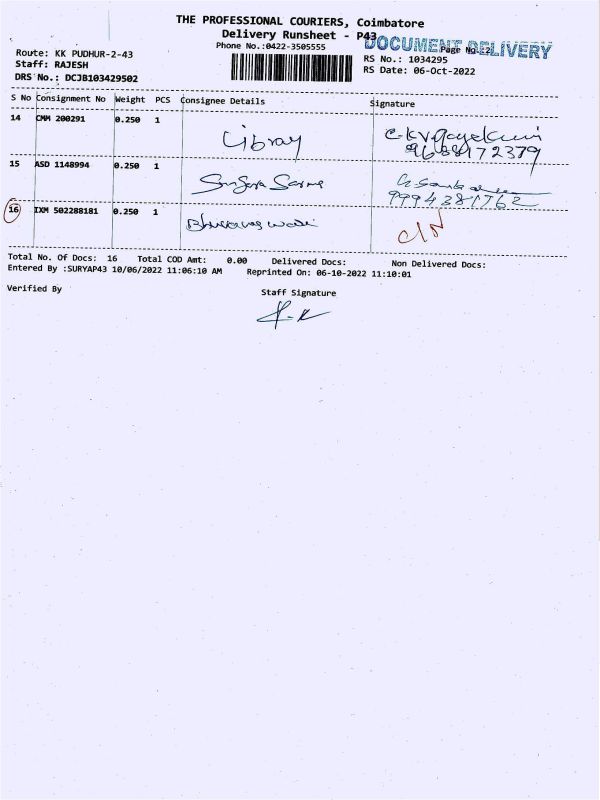 THE PROFESSIONAL COURIERS, Coimbatore
Delivery Runsheet - P43
Phone No.:0422-3505555
DOCUMENT DELIVERY
Page No. :2
Route: KK PUDHUR-2-43
Staff: RAJESH
DRS No.: DCJB103429502
RS No.: 1034295
RS Date: 06-Oct-2022
S No Consignment No Weight PCS Consignee Details Signature
14 CMM 200291 0.250 1
Library
9688172379
15 ASD 1148994 0.250 1
9994381762
16 IXM 502288181 0.250 1
C/N
Total No. Of Docs: 16 Total COD Amt: 0.00 Delivered Docs: Non Delivered Docs:
Entered By :SURYAP43 10/06/2022 11:06:10 AM Reprinted On: 06-10-2022 11:10:01
Verified By Staff Signature